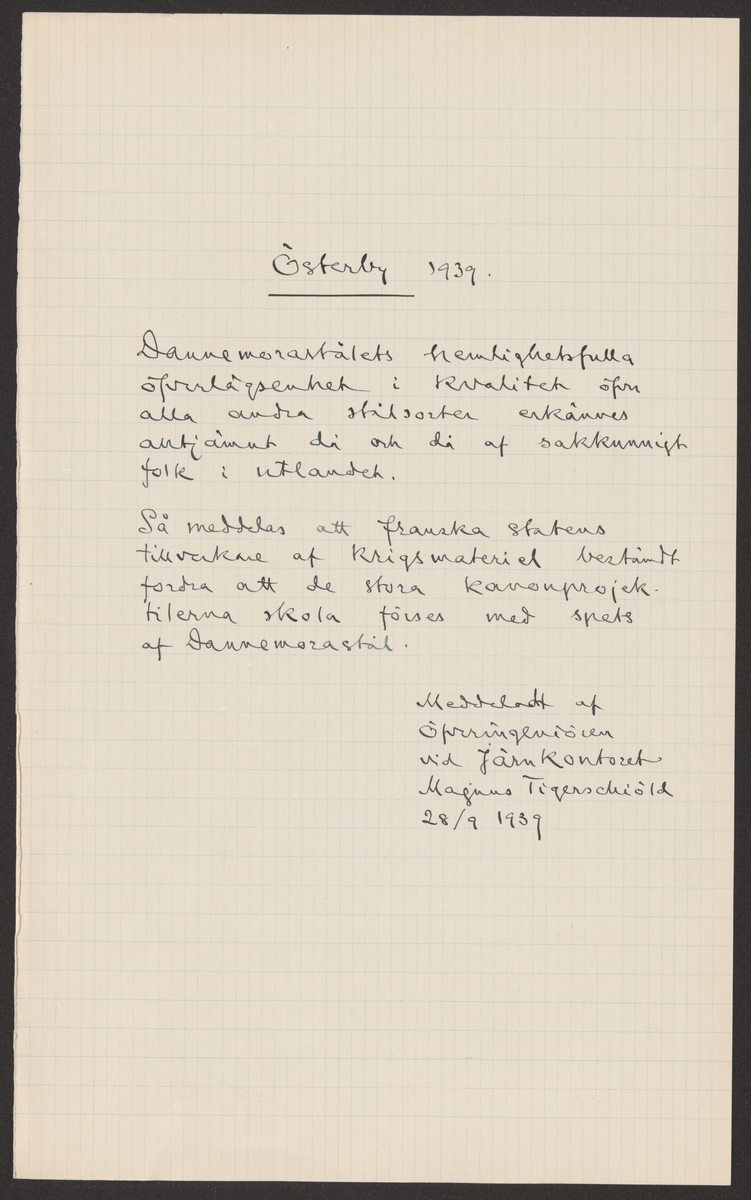 Österby 1939.
Dannemorastålets hemlighetsfulla
öfverlägsenhet i kvalitet öfver
alla andra stålsorter erkännes
alltjämnt då och då af sakkunnigt
folk i utlandet.
Så meddelas att franska statens
tillverkare af krigsmateriel bestämdt
fordra att de stora kanonprojek-
tilerna skola förses med spets
af Dannemorastål.
Meddeladt af
Öfveringeniören
vid Järnkontoret
Magnus Tigerschiöld
28/9 1939